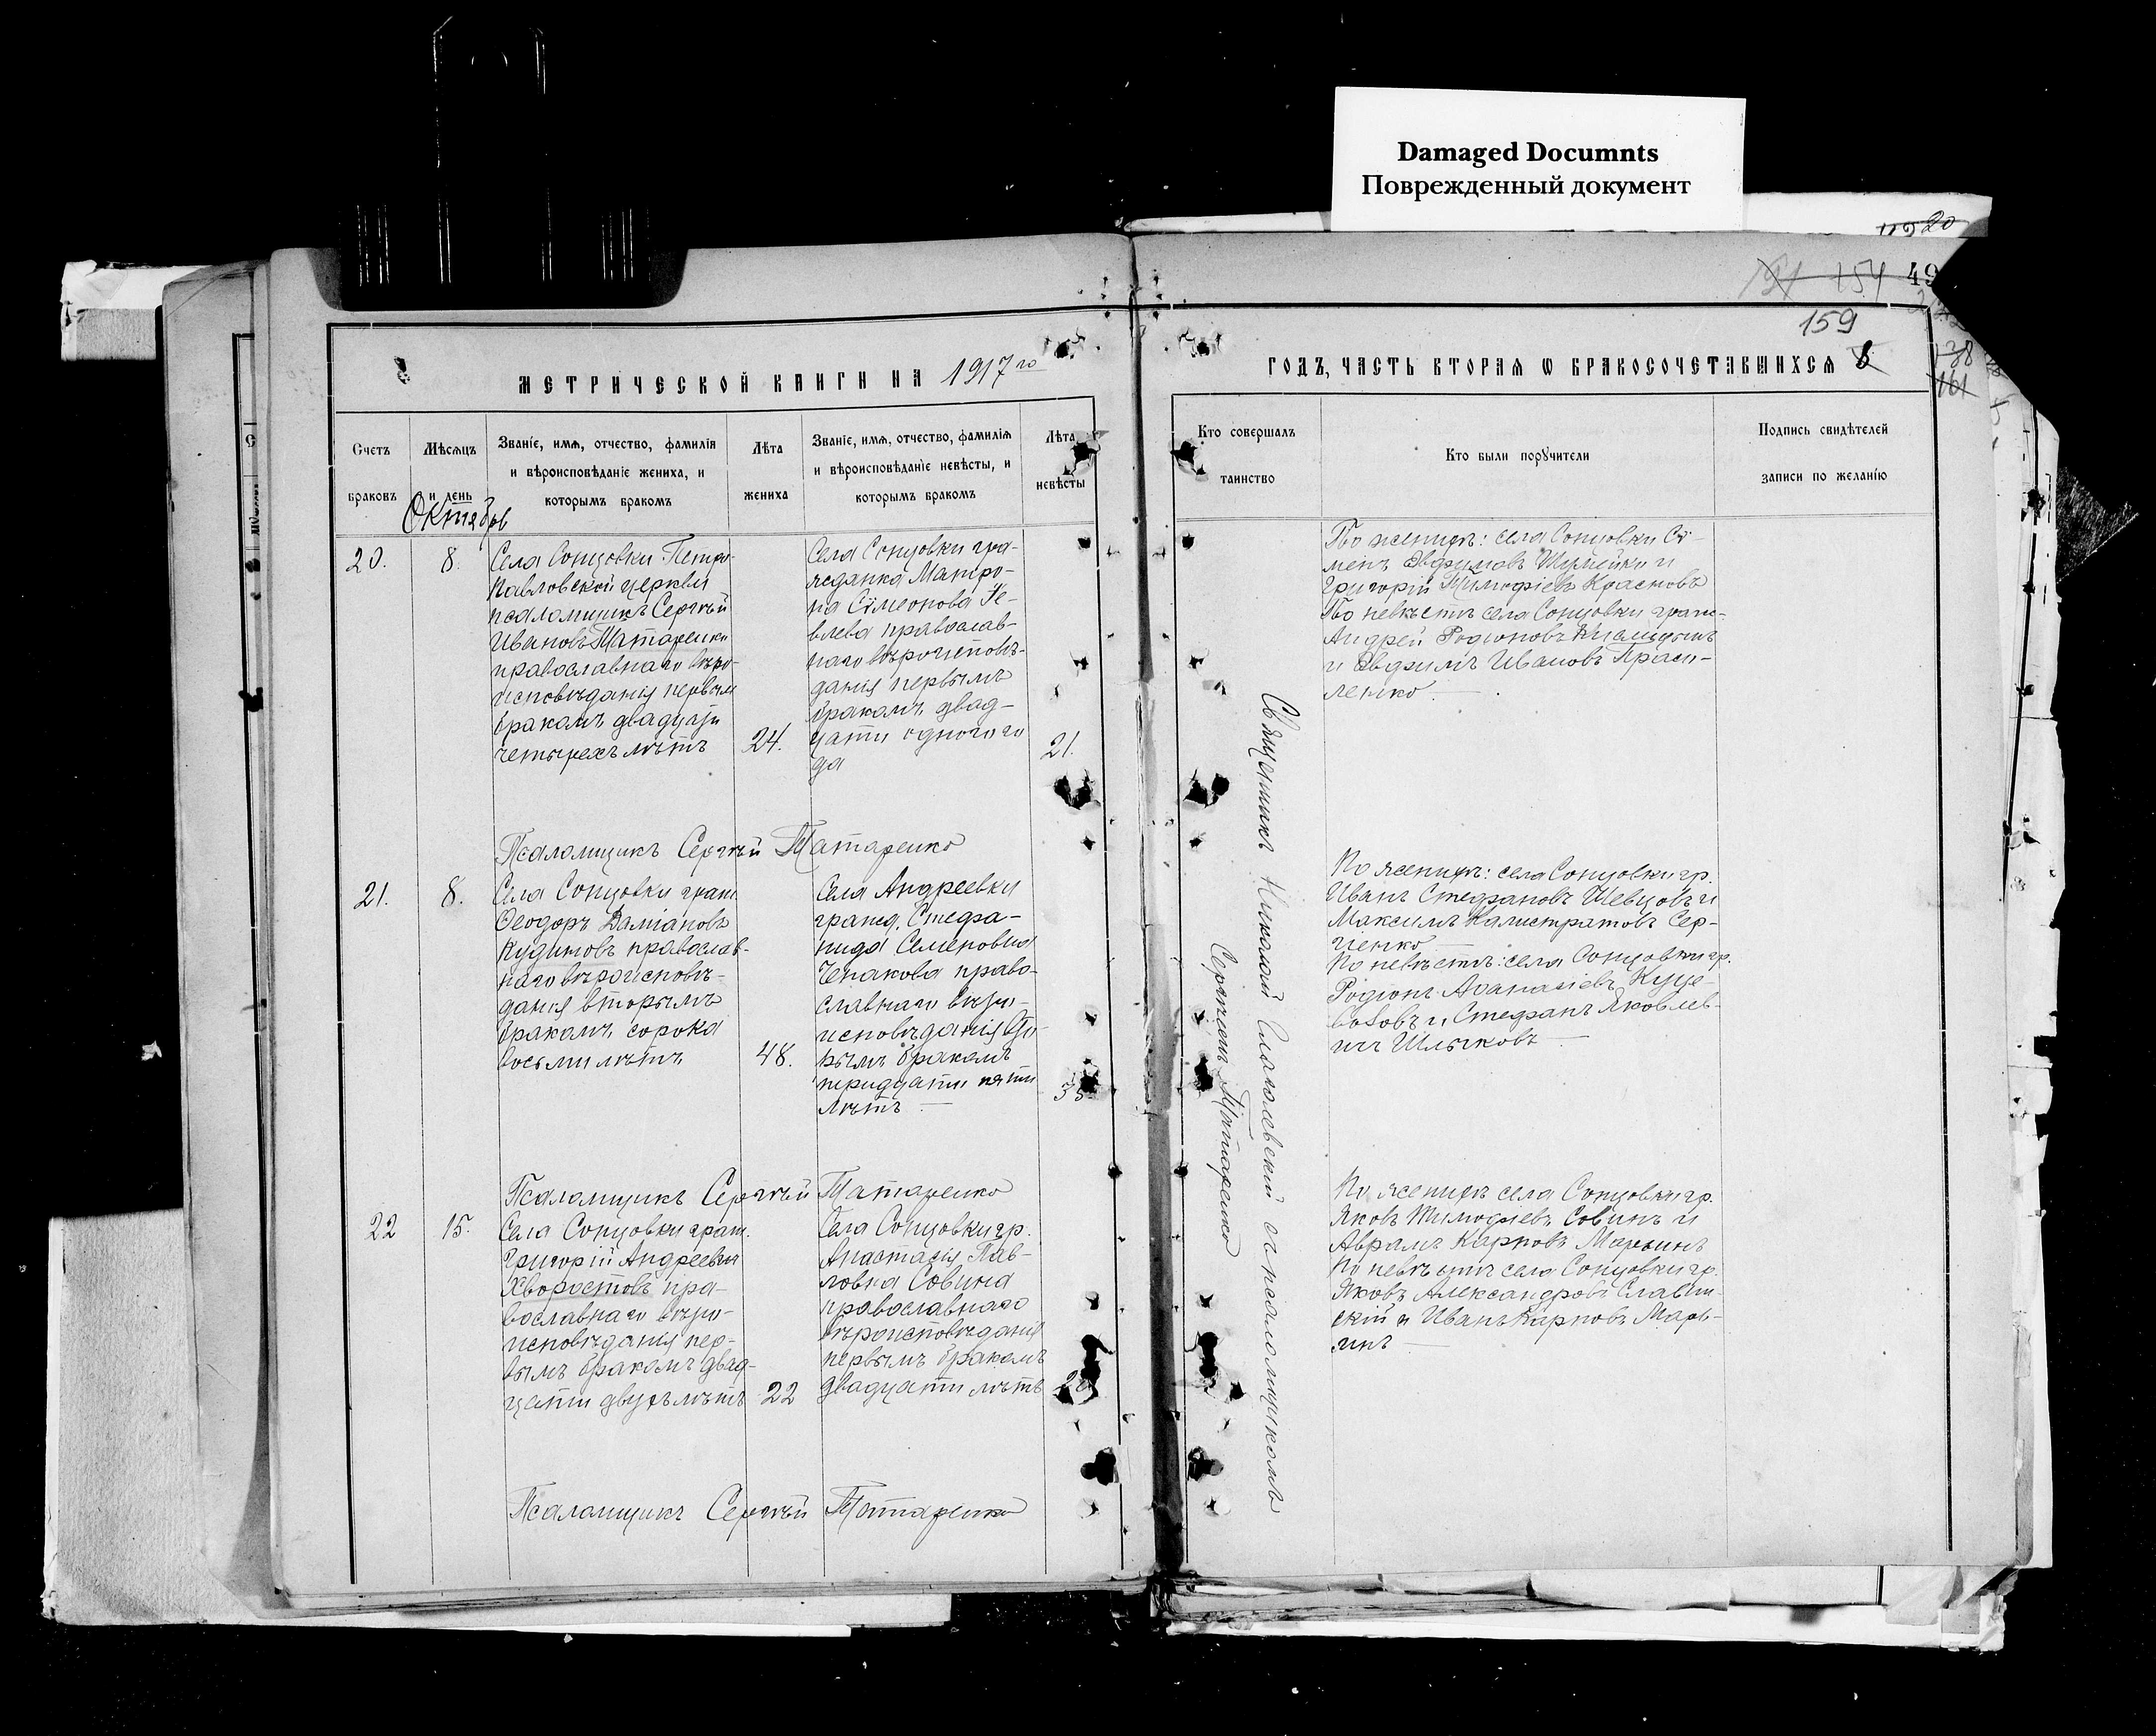 Damaged Documnts
Поврежденный документ
20
154
49
159
МЕТРИЧЕСКОЙ КНИГИ НА 1917 го
ГОДЪ, ЧАСТЬ ВТОРАЯ Ѡ БРАКОСОЧЕТАВШИХСЯ
Счетъ
браковъ
Мѣсяцъ
и день
Званіе, имя, отчество, фамилія
и вѣроисповѣданіе жениха, и
которымъ бракомъ
Лѣта
жениха
Званіе, имя, отчество, фамилія
и вѣроисповѣданіе невѣсты, и
которымъ бракомъ
Лѣта
невѣсты
Кто совершалъ
таинство
Кто были поручители
Подпись свидѣтелей
записи по желанію
Октябрь
20.
8.
Села Сонцовки Петро-
Павловской церкви
псаломщикъ Сергѣй
Ивановъ Татаренко
православнаго вѣро-
исповѣданія первымъ
бракомъ двадцати
четырехъ лѣтъ
24.
Села Сонцовки гра-
жданка Матро-
на Сѵмеонова Ге-
влева православ-
наго вѣроисповѣ-
данія первымъ
бракомъ двад-
цати одного го
да
21.
По женихѣ: села Сонцовки Сѵ-
менъ Евфимовъ Шумейки и
Григорій Тимофіевъ Красновъ
По невѣстѣ села Сонцовки граж-
Андрей Родіоновъ
и Евфимъ Ивановъ
ленко.
Псаломщикъ Сергѣй Татаренко
21.
8.
Села Сонцовки граж.
Ѳеодоръ Даміановъ
Кудиновъ православ-
наго вѣроисповѣ-
данія вторымъ
бракомъ сорока
восьми лѣтъ
48.
Села Андреевки
гражд. Стефа-
нида Семеновна
Чепакова право-
славнаго вѣро-
исповѣданія вто-
рымъ бракомъ
тридцати пяти
лѣтъ
35
По женихѣ: села Сонцовки гр.
Иванъ Стефановъ Шевцовъ и
Максимъ Калистратовъ Сер-
гіенко
По невѣстѣ: села Сонцовки гр.
Родіонъ Аѳанасіевъ Куце-
воловъ и Стефанъ Яковлев-
ичъ Шлыковъ
Псаломщикъ Сергѣй Татаренко
22
15.
Села Сонцовки граж.
Григорій Андреевъ
Хворостовъ пра-
вославнаго вѣро-
исповѣданія пер-
вымъ бракомъ двад-
цати двухъ лѣтъ
22
Села Сонцовки гр.
Анастасія Пав-
ловна Совина
православнаго
вѣроисповѣданія
первымъ бракомъ
двадцати лѣтъ
20
По женихѣ села Сонцовки гр.
Яковъ Тимофіевъ Совинъ и
Аврамъ Карповъ Марьинъ
По невѣстѣ села Сонцовки гр.
Яковъ Александровъ Славин-
скій и Иванъ Карповъ Марь-
инъ
Псаломщикъ Сергѣй Татаренко
Священникъ Николай съ псаломщикомъ
Сергѣемъ Татаренко